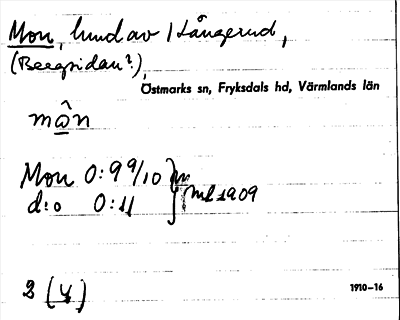 Mon, hmd av 1 Långerud,
(Bergsidan?),
Östmarks sn, Fryksdals hd, Värmlands län
mo̲n
Mon 0:9 9/10
d:o 0:11 } ml 1909
2 (4)
1910-16